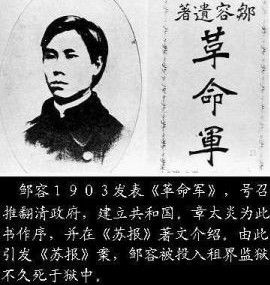 鄒容遺著
革命軍
邹容１９０３发表《革命军》，号召
推翻清政府，建立共和国。章太炎为此
书作序，并在《苏报》著文介绍。由此
引发《苏报》案，邹容被投入租界监狱
不久死于狱中。